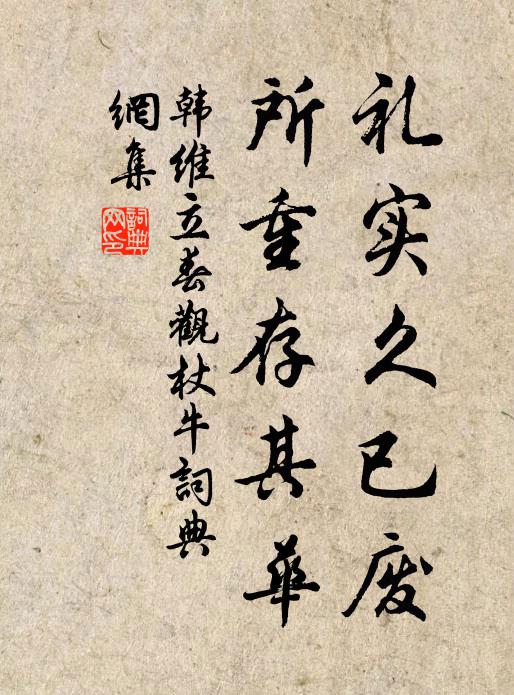 礼实久已废
所重存其华
韩维立春觀杖牛詞典
網集
詞典
网印